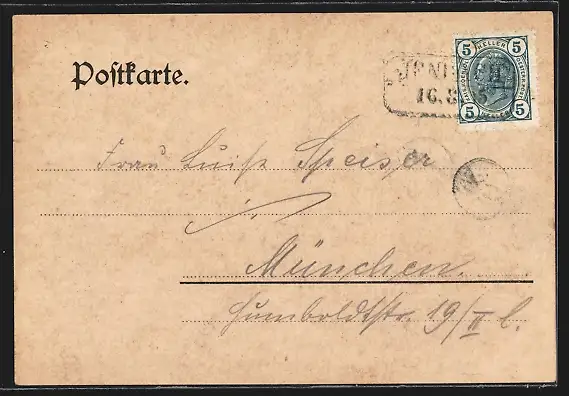 Postkarte.
5 HELLER 5
16.8
5 HELLER 5
Frau Luise Speiser
in
München.
Humboldtstr. 19/II l.